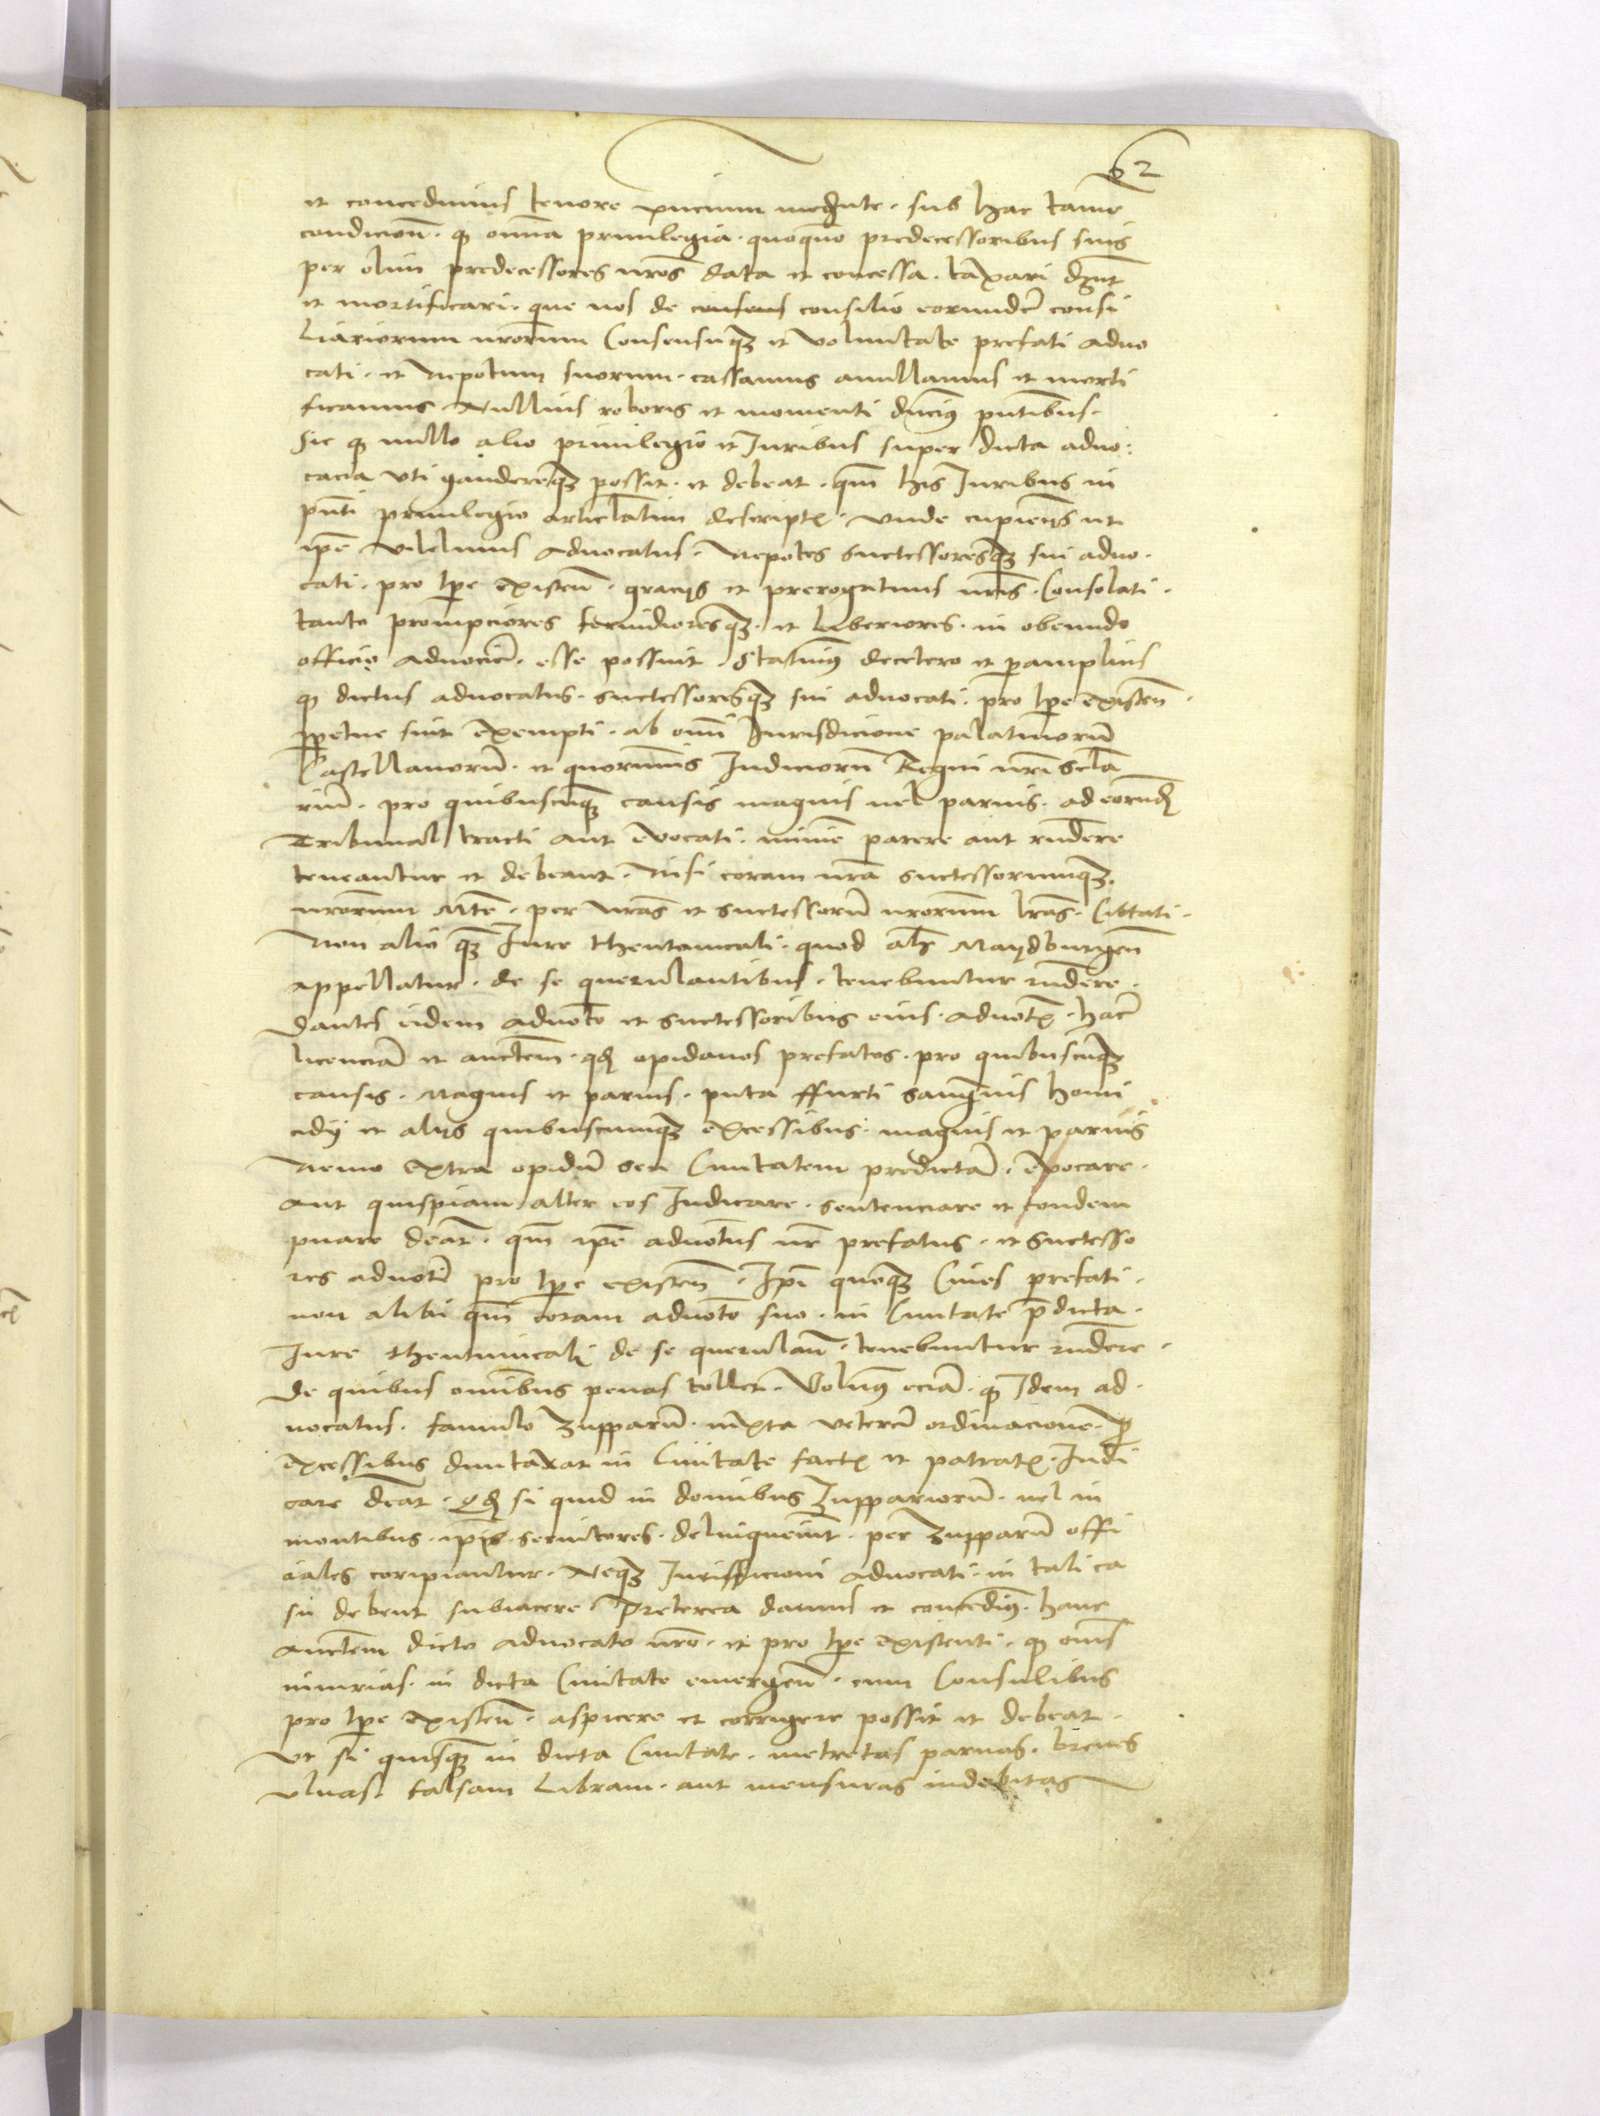 62
et concedimus tenore pncium mediante. sub hac tame
condicion. q omia priuilegia. quoquo predecessoribus suis
per olim predecessores nros data et concessa. taxari dnt
et mortificari. que nos de consens consilio eorunde consi
liariorum nrorum Consensuqz et Voluntate prefati aduo
cati. et Nepotum suorum. cassamus anullamus et morti
ficamus Nullius roboris et momenti pntibus.
Sic q nullo alio priuilegio et Juribus super dicta aduo:
cacia vti gaudereqz possit. et debeat. qm his Juribus in
pnti priuilegio articlatim descriptis. Vnde cupientes ut
ipe Advocatus. Nepotes Successoresqz sui aduo.
cati. pro tpe existen. gracys et prerogatiuis nris. Consolati.
tanto prompciores feruidioresqz. et liberiores. in obeundo
officio Aduocie. esse possint. Statuimus decetero et peramplius
q dictus aduocatus. Successoresqz sui aduocati. pro tpe existen.
ppetue sint exempti. ab omi Jurisdicione palatinoru
Castellanoru. et quorumuis Judicioru Regni nri Scla
riu. pro quibuscuqz causis magnis uel paruis. ad eorud
Tribunal tracti aut evocati. minie parere aut rndere
teneantur et debeant. Nisi coram nra successorumqz
nrorum Mte. per nras et successoru nrorum lras. Citati.
Non alio qz Jure theutonicali. quod als Maydburgen
appellatur. de se querulantibus. tenebuntur rndere.
Dantes eidem aduoto et successoribus eius. aduotis. hac
licencia et auctem. qd opidanos prefatos. pro quibuscuqz
causis. Magnis et paruis. puta ffurti Sanguis homi
cidy et alys quibuscumqz excessibus. magnis et paruis
Nemo extra opidu Seu Ciuitatem predicta. evocare.
Aut quispiam alter eos Judicare. sentenciare et condem
pnare deat. qm ipe aduotus nr prefatus. et Successo
res aduoti pro tpe existen. Ipi quoqz Ciues prefati.
non alibi qm coram aduoto suo. in Ciuitate pdicta.
Jure theutunicali de se querulan. tenebuntur rndere.
De quibus omibus penas tollet. Volumus ecia. q Idem ad.
uocatus. famulo Zupparu. iuxta veterem ordinacione. p
excessibus duntaxat in Ciuitate factis et patratis. Judi
care deat. Qd si quid in domibus Zuppariorum. uel in
montibus. ipis. seruitores. delinquerint. per Zupparu offi
ciales coripiantur. Neqz Jurisdicioni Aduocati. in tali ca
su debent subiacere. Preterea damus et concedimus. hanc
Auctem dicto Aduocato nro. et pro tpe existenti. q omis
iniurias. in dicta Ciuitate emergen. cum Consulibus
pro tpe existen. aspicere et corrigere possit et debeat.
Vt si quisqz in dicta Ciuitate. metretas paruas. breues
vlnas. falsam Libram. aut mensuras indebitas